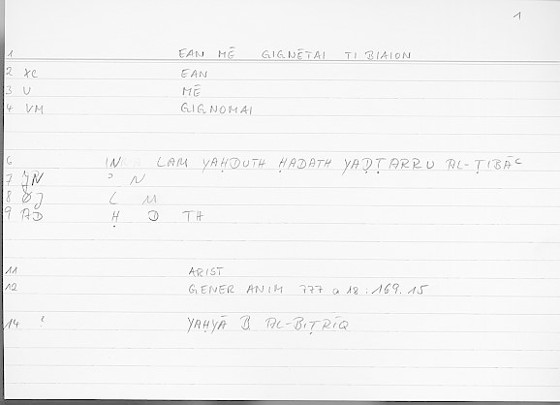 1
1 EAN MĒ GIGNĒTAI TI BIAION
2 XC EAN
3 U MĒ
4 VM GIGNOMAI
6 IN LAM YAḤDUTH ḤADATH YAḌṬARRU AL-ṬIBĀC
7 N ʾ N
8 L M
9 AD Ḥ D TH
11 ARIST
12 GENER ANIM 777 a 18 : 169.15
14 YAḤYĀ B. AL-BIṬRĪQ